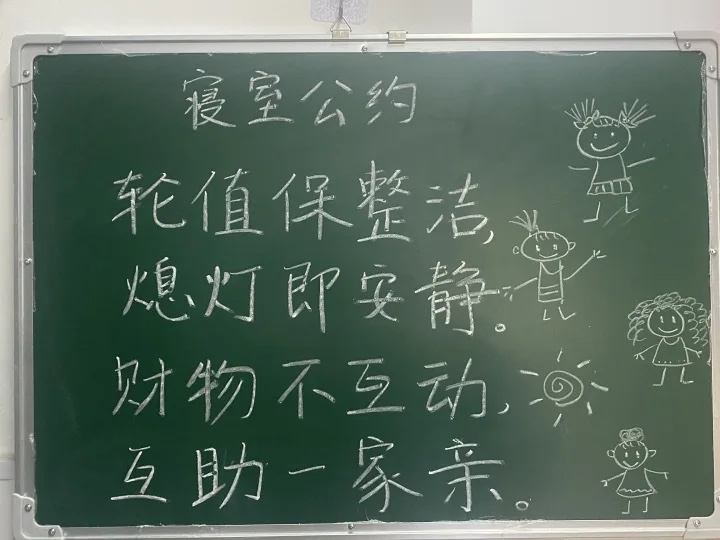 寝室公约
轮值保整洁,
熄灯即安静。
财物不互动,
互助一家亲。